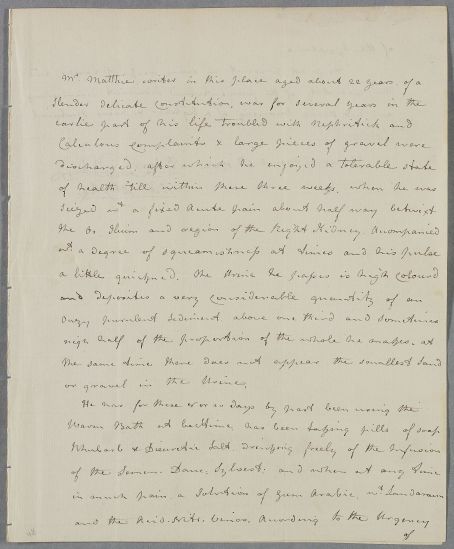 Mr Matthie writer in this place aged about 22 years, of a
slender delicate Constitution, was for several years in the
earlier part of his life troubled with Nephritick and
Calculous complaints & large pieces of gravel were
discharged, after which he enjoyed a tolerable state
of health till within these three weeks, when he was
seized wt a fixed Acute pain about half way betwixt
the Os Ilium and region of the Right Kidney, Accompanied
wt a degree of squeamishness at times and his pulse
a little quickned. The Urine he passes is high coloured
and deposites a very Considerable quantity of an
purulent sediment above one third and sometimes
nigh half of the proportion of the whole he makes. at
the same time there does not appear the smallest Sand
or gravel in the Urine.
He has for these or 10 days by past been using the
Warm Bath at bedtime, has been taking pills of soap
Rhubarb & Diuretic Salt drinking freely of the Infusion
of the Semen. Dauc. Sylvest: and when at any time
in much pain a Solution of gum Arabic wt Laudanum
and the According to the Urgency
of